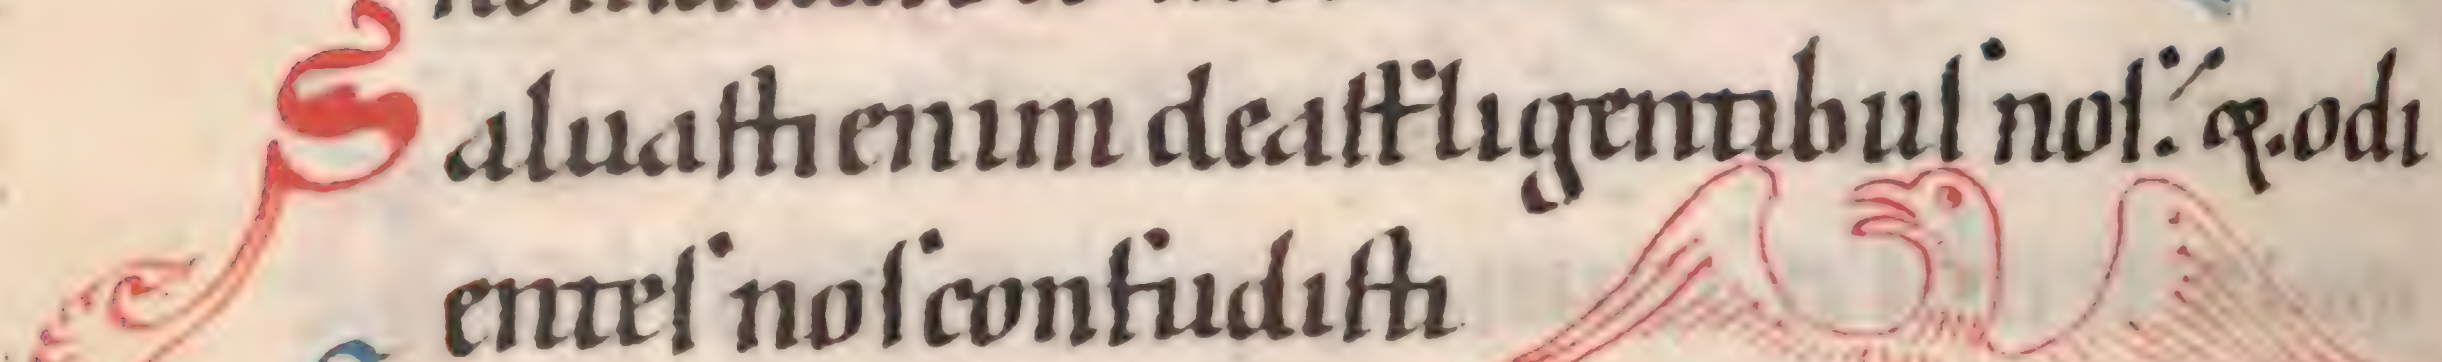 Saluasti enim de affligentibus nos: & odi
entes nos confudisti